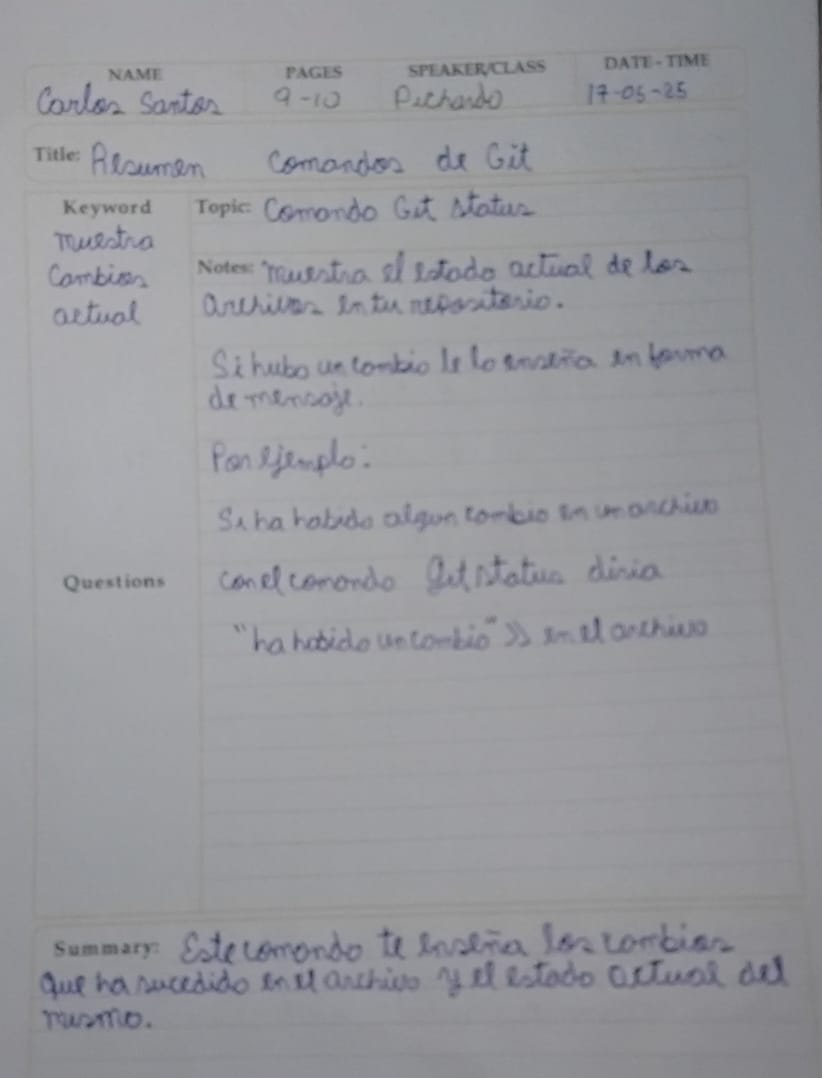 NAME PAGES SPEAKER/CLASS DATE - TIME
Carlos Santos 9-10 Pichardo 17-05-25
Title: Resumen Comandos de Git
Keyword Topic: Comando Git status
muestra
Cambios Notes: muestra el estado actual de los
actual archivos en tu repositorio.
Si hubo un cambio le lo enseña en forma
de mensaje.
Por ejemplo:
Si ha habido algun cambio en un archivo
Questions con el comando git status diria
"ha habido un cambio" >> en el archivo
Summary: Este comando te enseña los cambios
que ha sucedido en el archivo y el estado actual del
mismo.